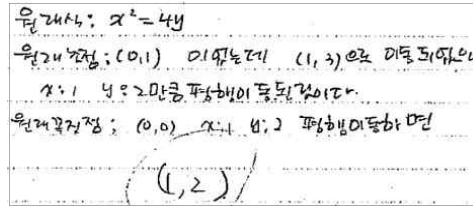 원래식: x² = 4y
원래초점: (0,1) 이었는데 (1, 3)으로 이동되었으
x: 1 y: 2만큼 평행이동된것이다.
원래꼭짓점: (0,0) x:1 y:2 평행이동하면
(1,2)